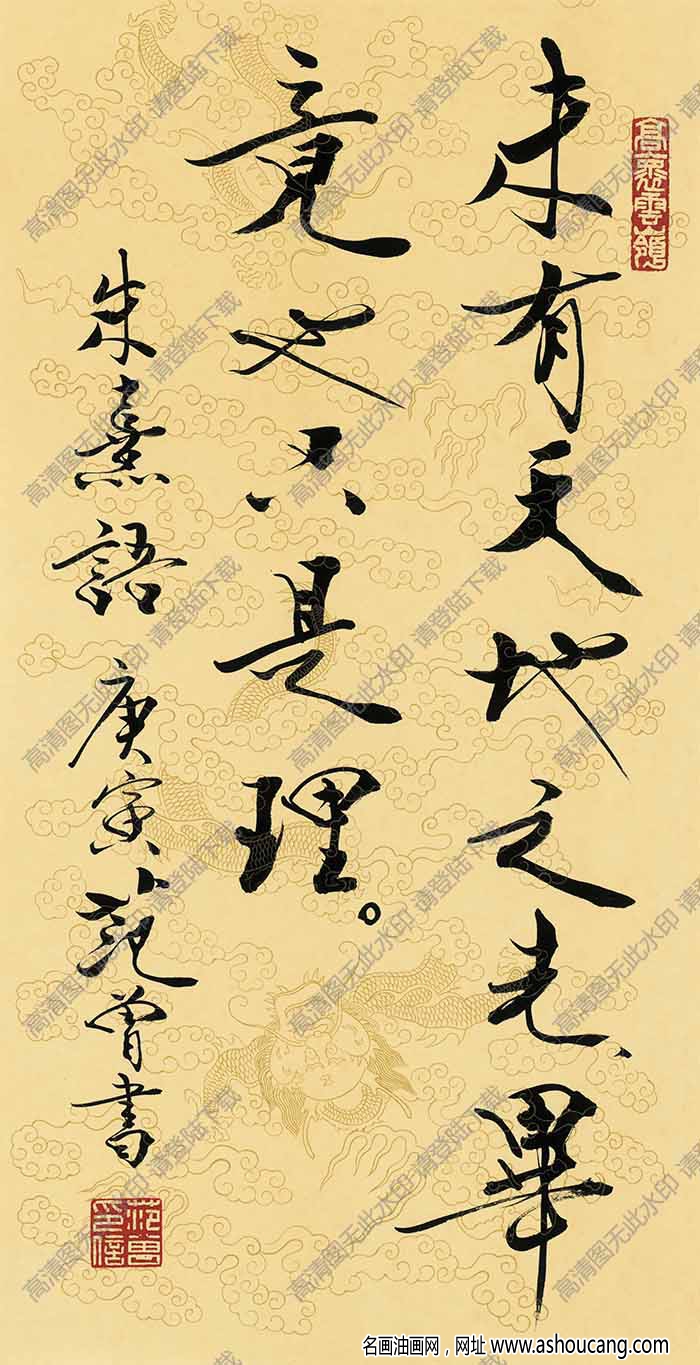 未有天地之先、畢
竟也只是理。
朱熹語 庚寅 范曾書
范曾印信
高清图无此水印 请登陆下载
名画油画网，网址 www.ashoucang.com